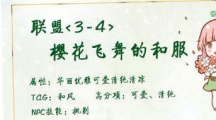 联盟<3-4>
樱花飞舞的和服
属性：华丽优雅可爱清纯清凉
TAG：和风 高分项：可爱、清纯
NPC技能：挑剔